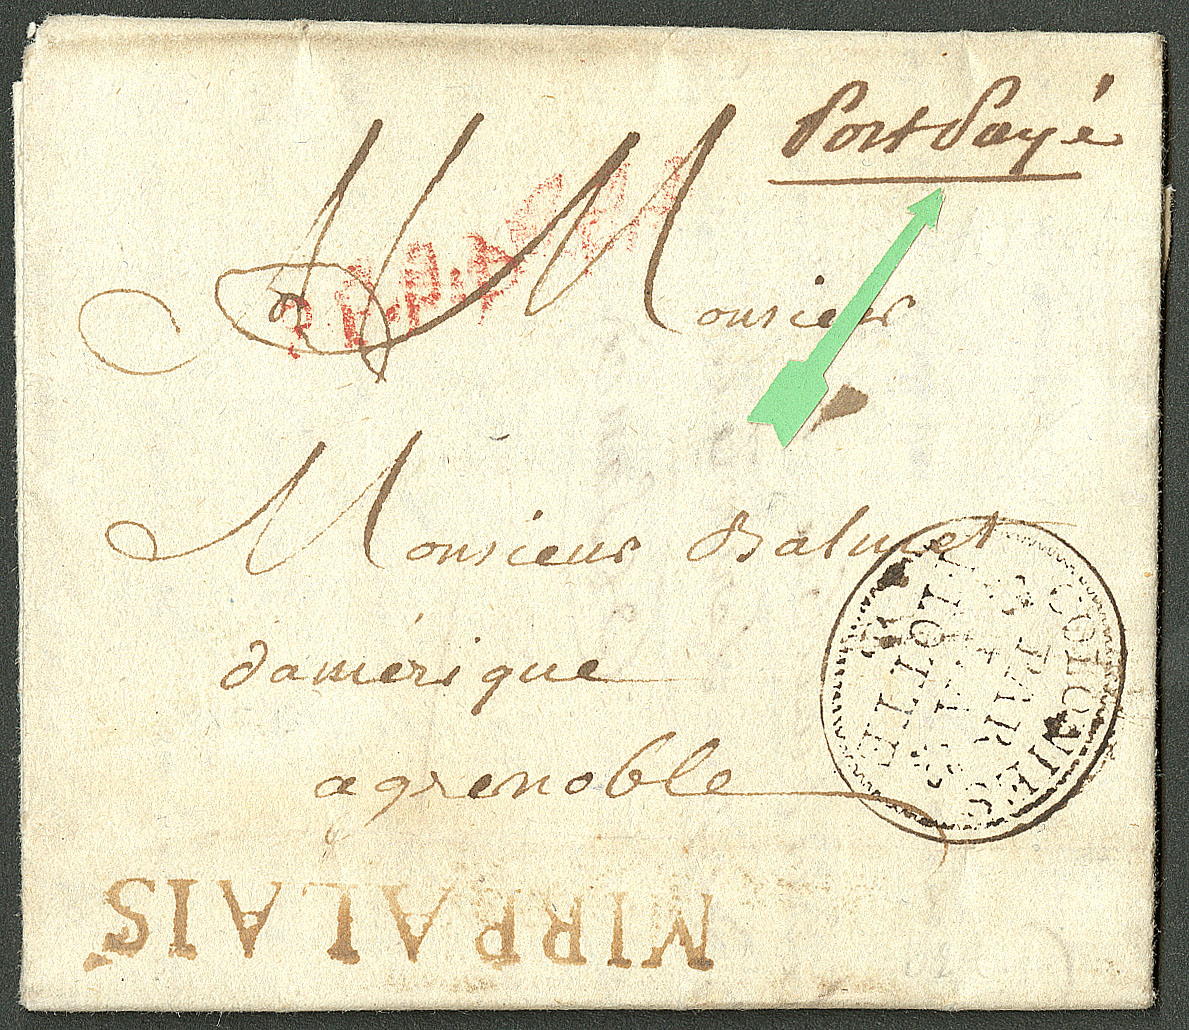 Port Payé
A Monsieur
P.P.P.P.
Monsieur Balmet
damérique
a grenoble
COLONIES
PAR
LA
ROCHELLE
MIRBALAIS